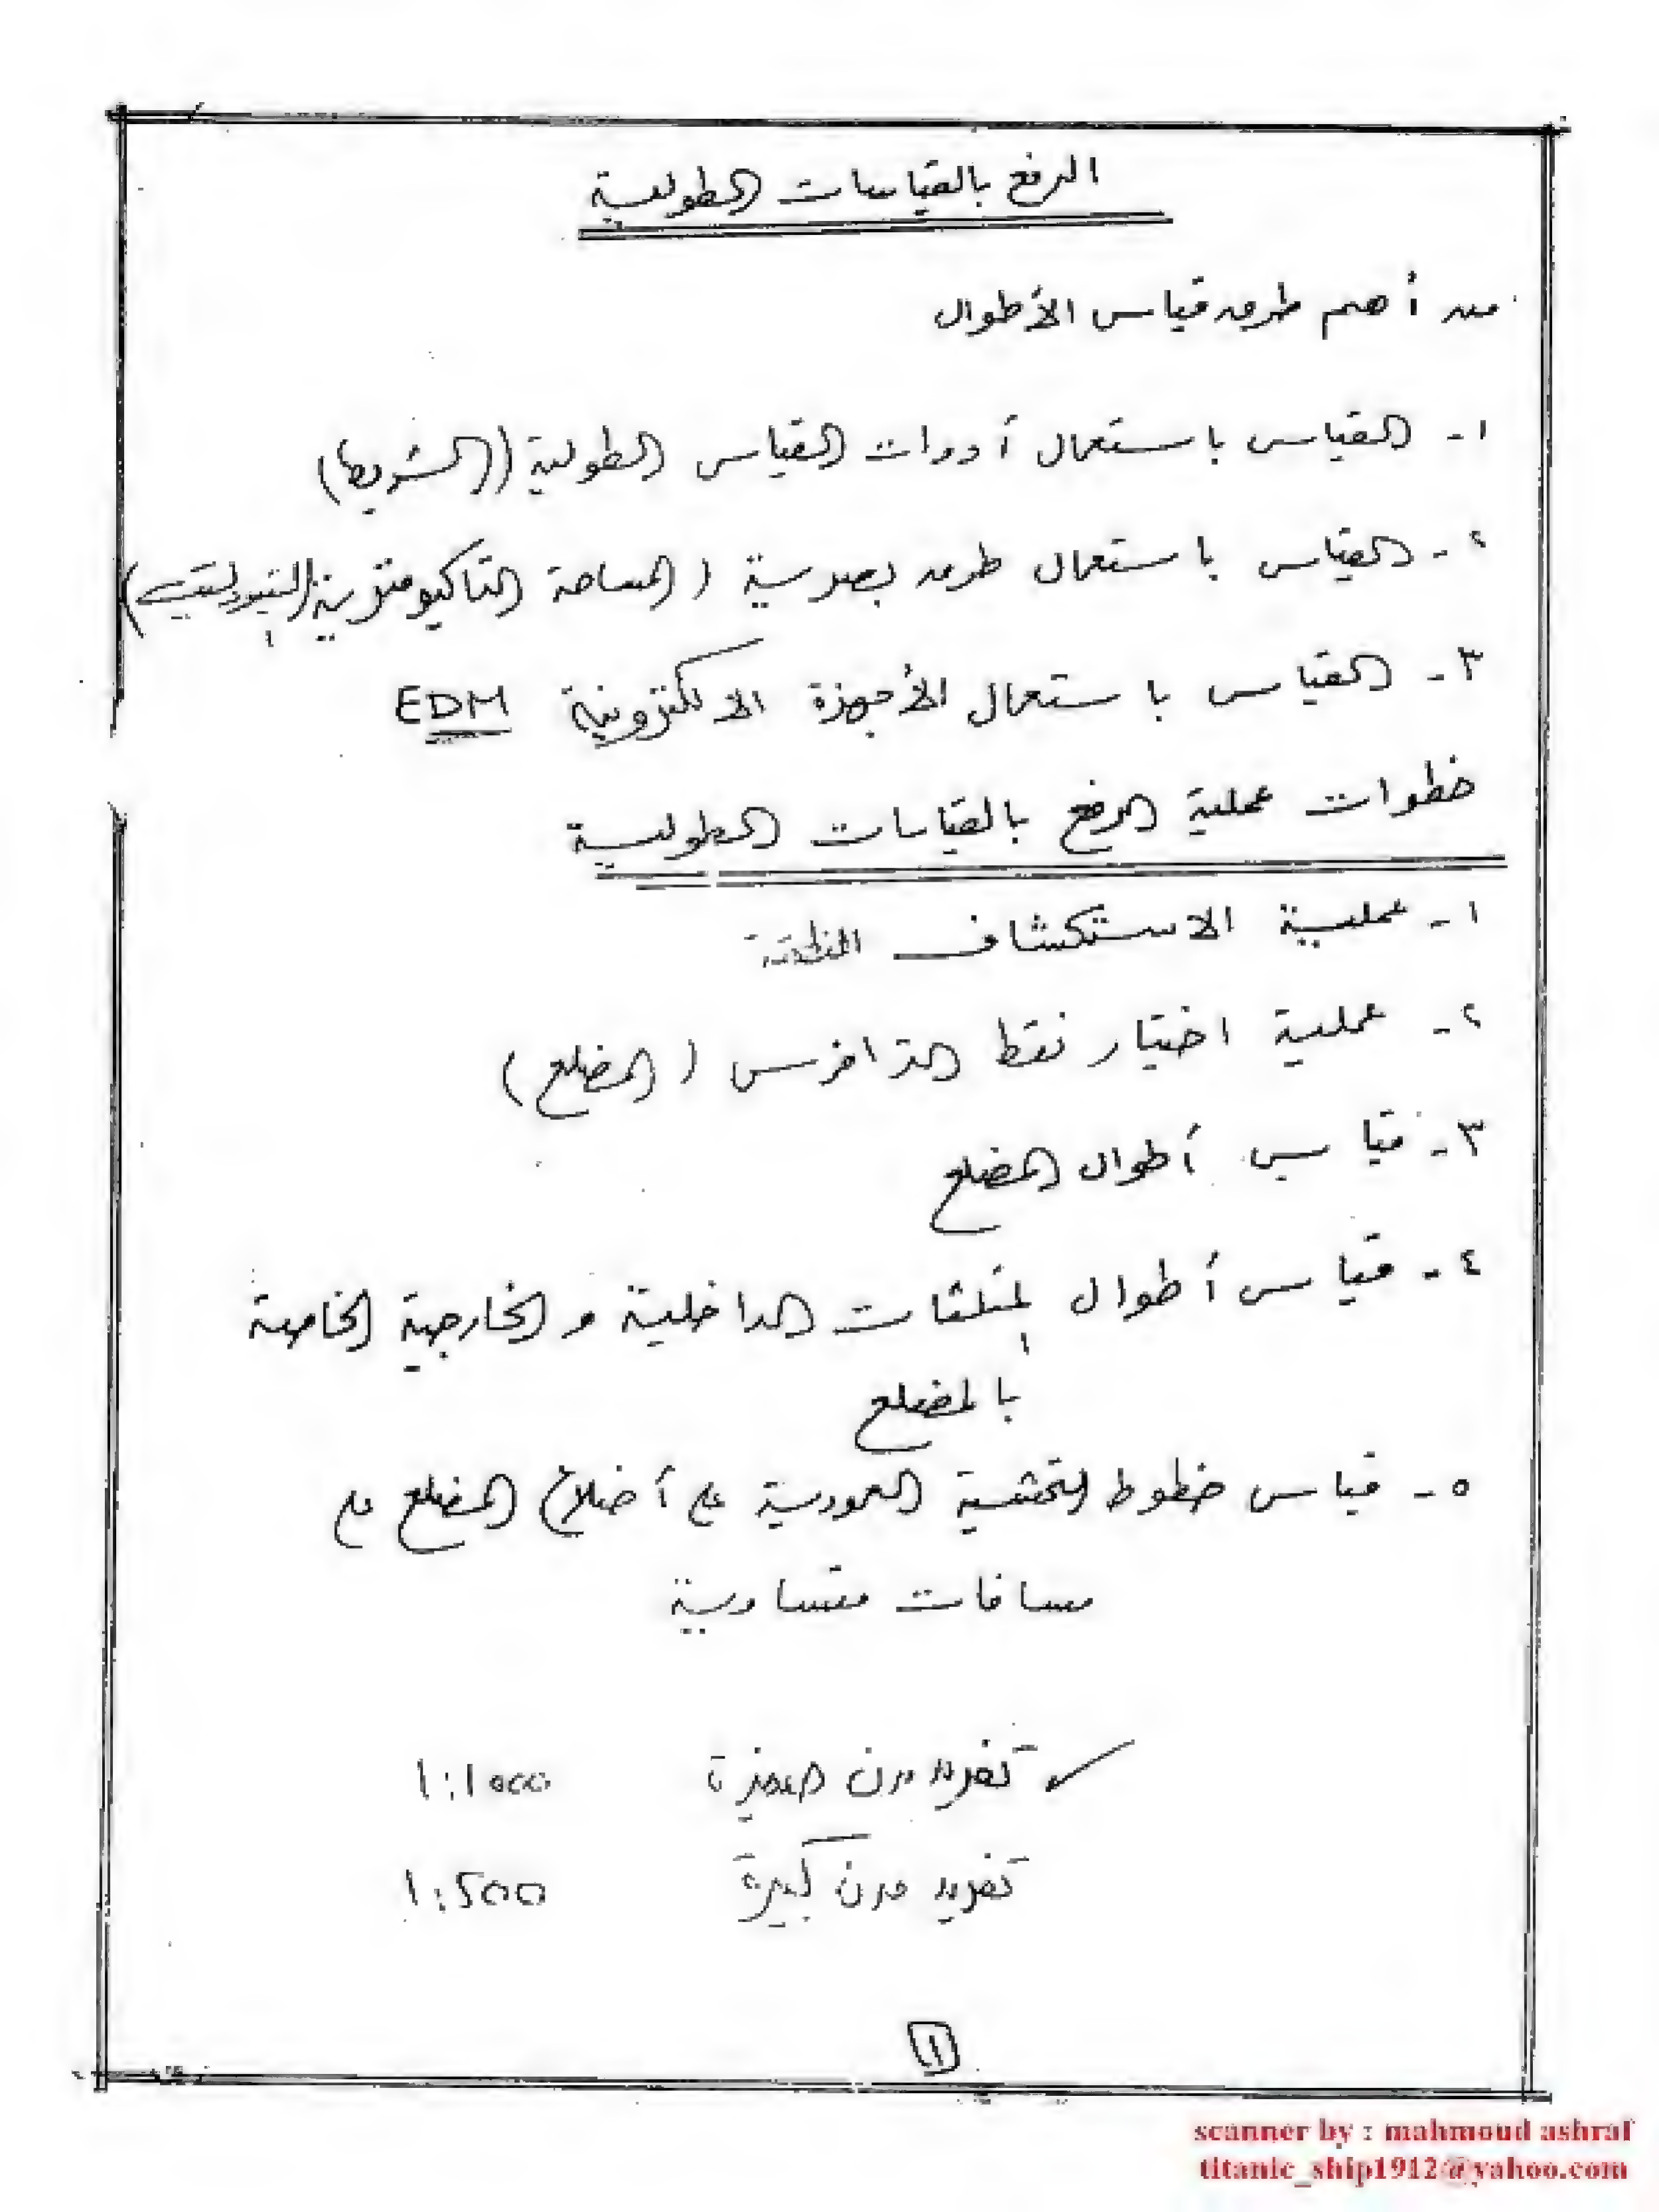 الرفع بالقياسات الطولية
من أهم طرق قياس الأطوال
١- القياس باستعمال أدوات القياس الطولية ((الشريط)
٢- القياس باستعمال طرق بصرية (المساحة التاكيومترية (التيودوليت)
٣- القياس باستعمال الأجهزة الالكترونية EDM
خطوات عملية الرفع بالقياسات الطولية
١- عملية الاستكشاف المنطقة
٢- عملية اختيار نقط الترافرس (المضلع)
٣- قياس أطوال المضلع
٤- قياس أطوال المثلثات الداخلية والخارجية الخاصة
بالمضلع
٥- قياس خطوط التحشية العمودية على أضلاع المضلع على
مسافات متساوية
تفريد مدن صغيرة 1:1000
تفريد مدن كبيرة 1:500
١
scanner by : mahmoud ashraf
titanic_ship1912@yahoo.com